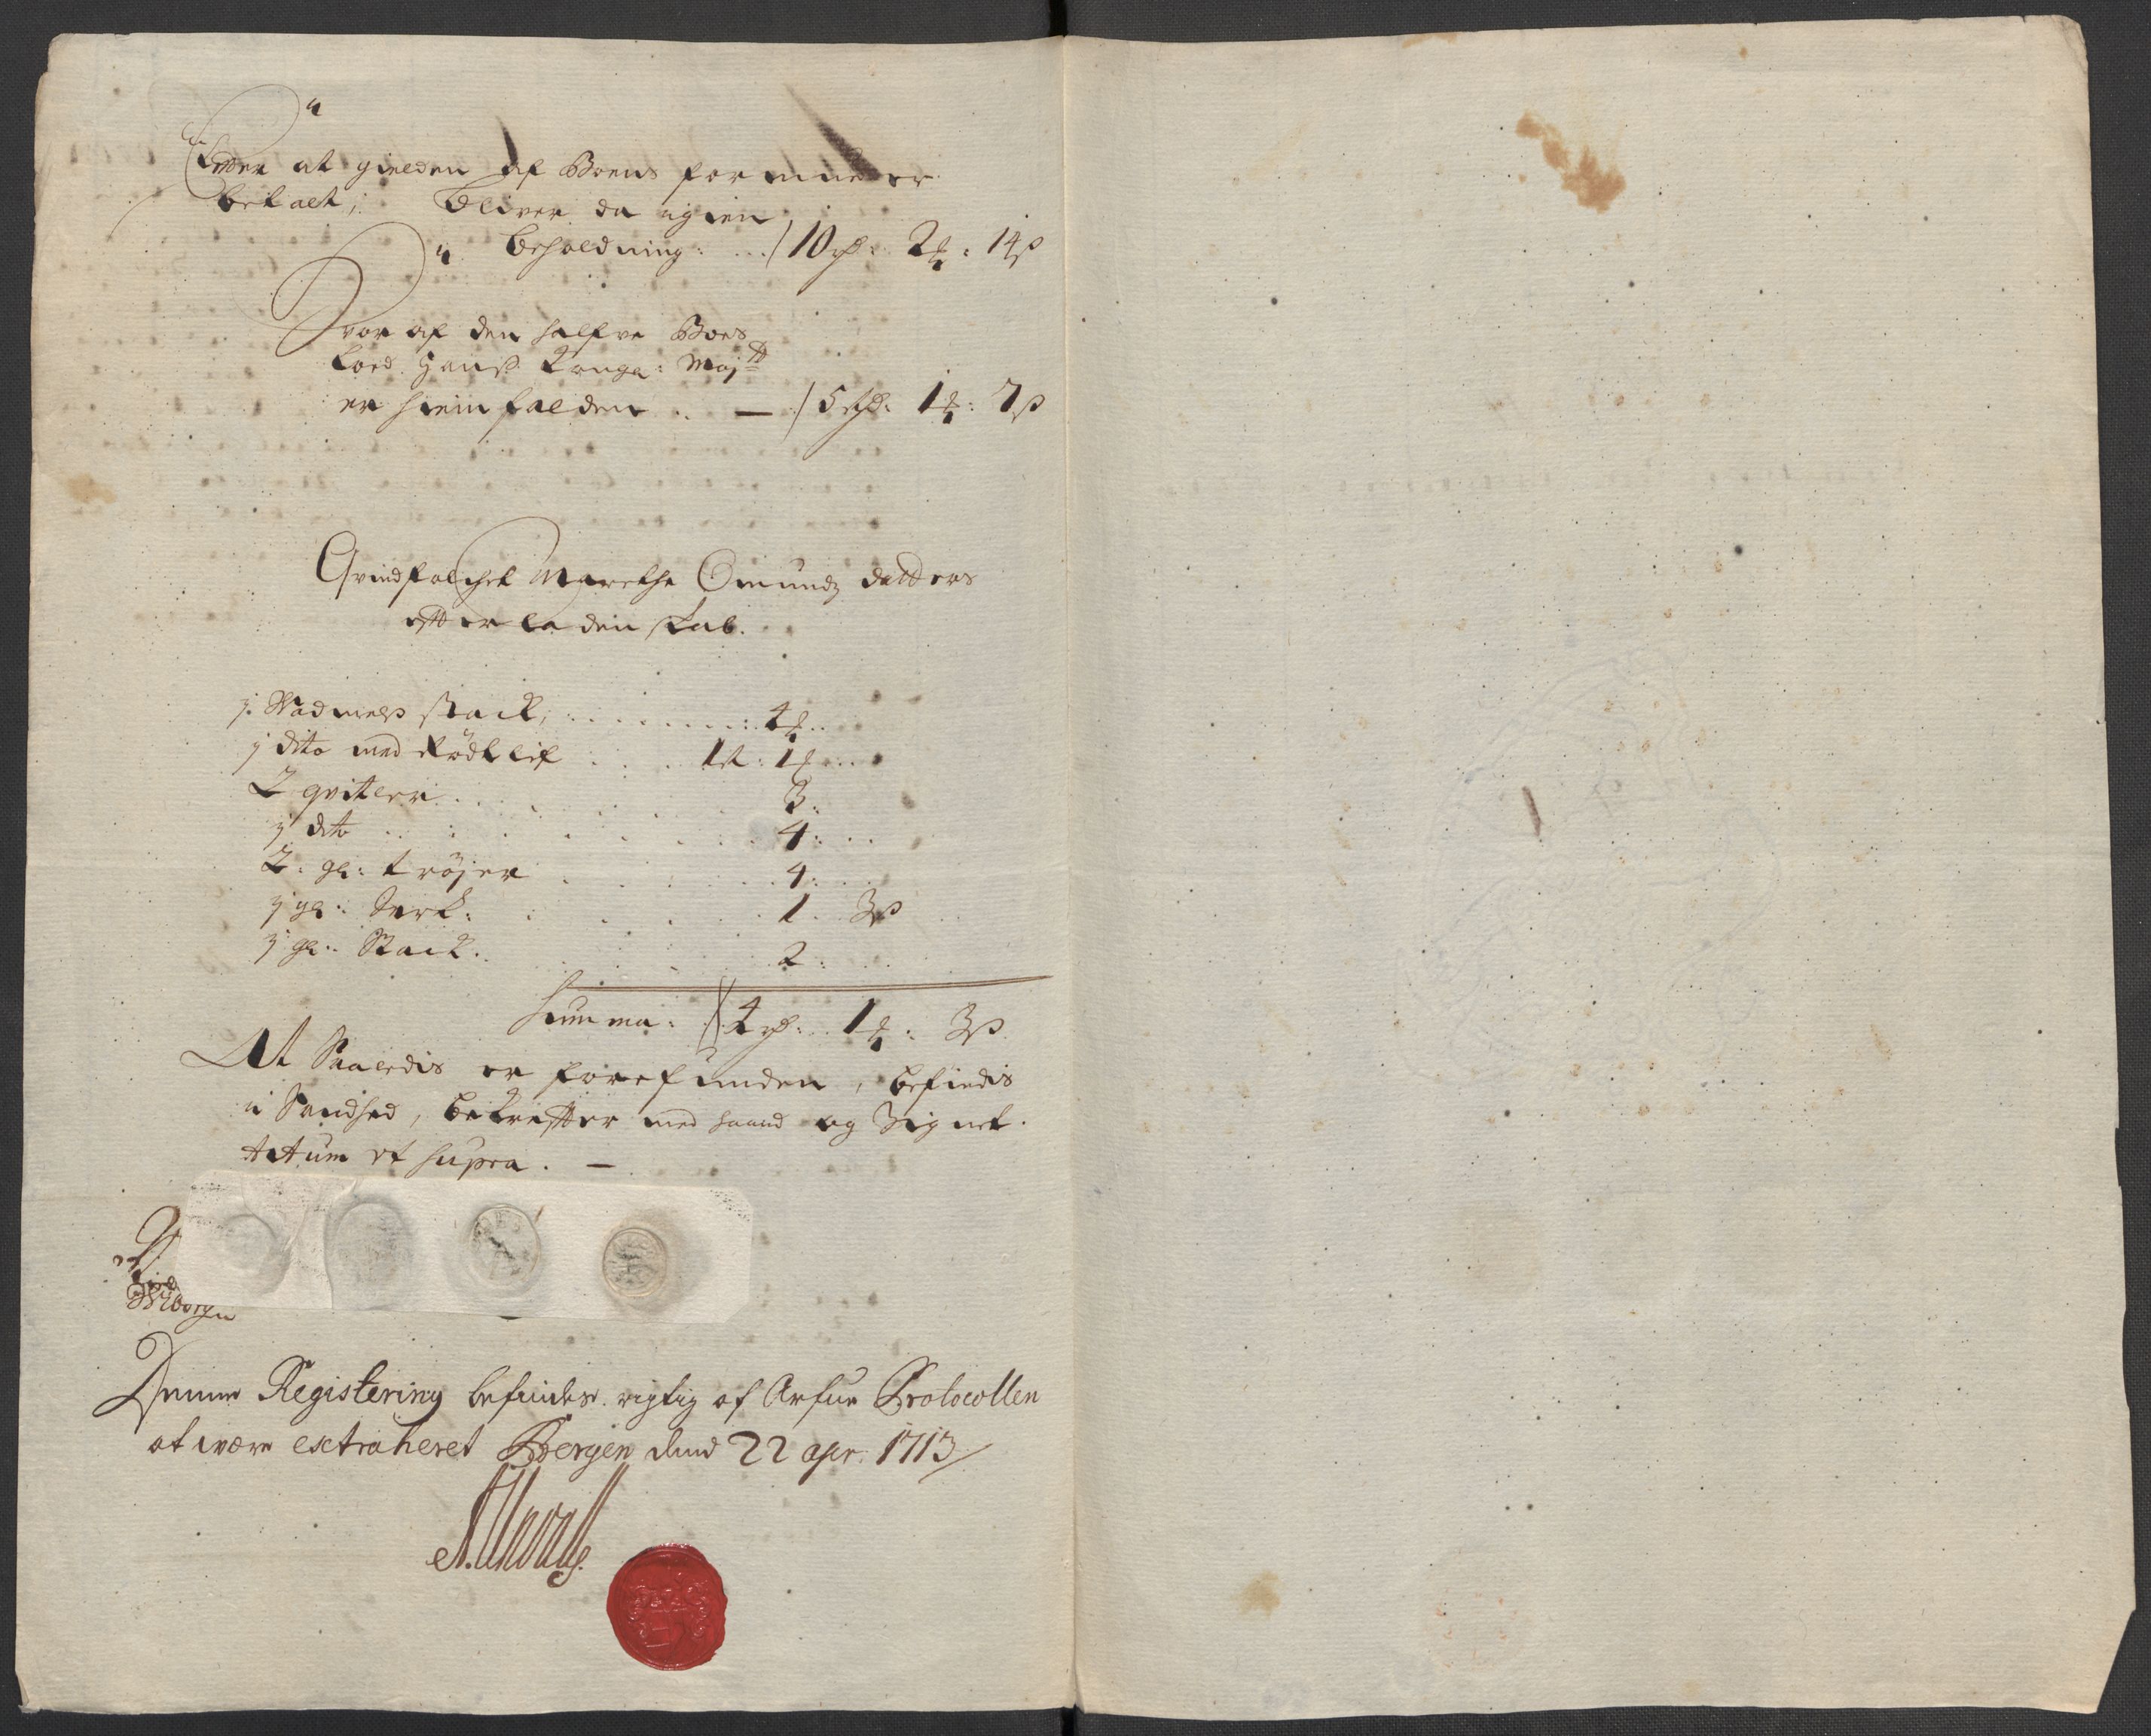 Efter at gielden af Boens formue er
betalt, bliver da igien
beholdning: . . . 10 rd: 2 ꝑ: 14 ß
Hvor af den halfve Boes
Lod Hans Konge: Majtt
er hiemfalden . . — 5 rd: 1 ꝑ: 7 ß
Qvindfolchet Marethe Omundz datters
efterladenskab.
j. Vadmels stack, . . . . . . . . : 4 ꝑ . .
j dito med Rødt lif . . . 1 rt: 1 ꝑ . . .
2 qvitler . . . 3:
j dito . . . 4: . .
2. gl: trøjer . . . 4: . .
j gl: Serk: . . . 1 . 3 ß
j gl: Stack. . . . 2: . .
Summa: 4 rd: . . 1 ꝑ: 3 ß
At Saaledis er forefunden, befindis
i Sandhed, bekrefter med haand og Signet.
Actum ut supra. —
Denne Registering befindes rigtig af Arfue Protocollen
at være extraheret Bergen dend 22 apr. 1713